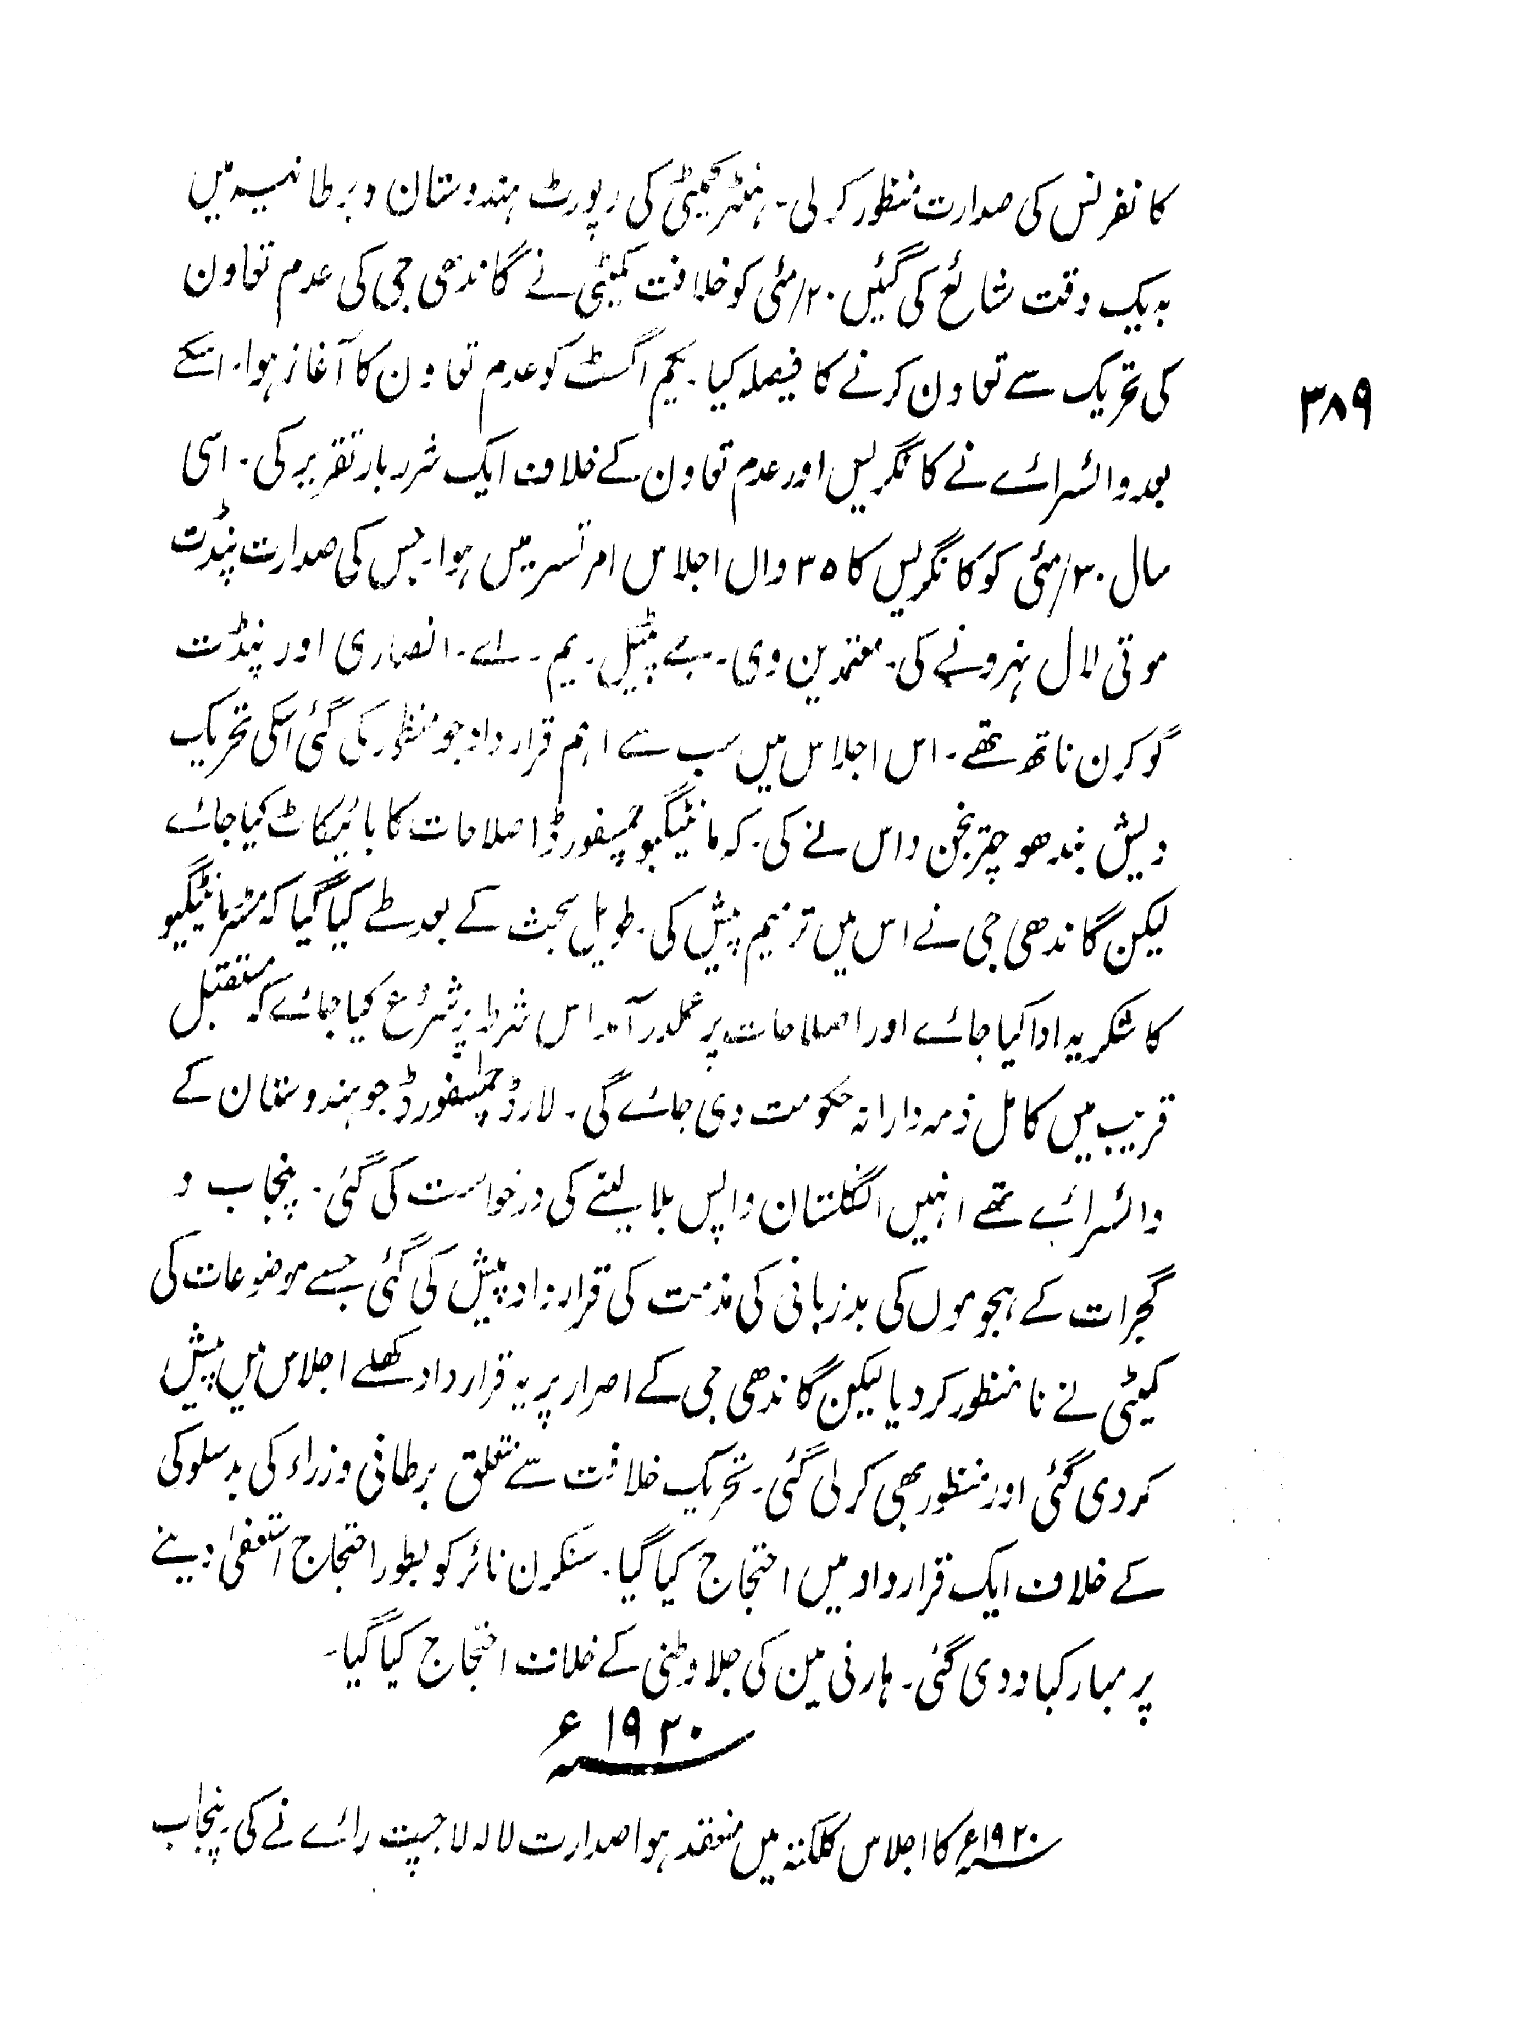 کانفرنس کی صدارت منظور کرلی۔ ہنٹر کمیٹی کی رپورٹ ہندوستان و برطانیہ میں
بہ یک وقت شائع کی گئیں ۲۰/مئی کو خلافت کمیٹی نے گاندھی جی کی عدم تعاون
کی تحریک سے تعاون کرنے کا فیصلہ کیا۔ یکم اگسٹ کو عدم تعاون کا آغاز ہوا۔ اسکے
۳۸۹
بعد وائسرائے نے کانگریس اور عدم تعاون کے خلاف ایک شرر بار تقریر کی۔ اسی
سال ۳۰/مئی کو کانگریس کا ۳۵ واں اجلاس امرتسر میں ہوا۔ جس کی صدارت پنڈت
موتی لال نہرو نے کی۔ معتمدین وی۔ جے پٹیل۔ یم۔ اے۔ انصاری اور پنڈت
گوکرن ناتھ تھے۔ اس اجلاس میں سب سے اہم قرارداد جو منظور کی گئی اسکی تحریک
دیش بندھو چترنجن داس نے کی۔ کہ مانٹیگیو چمسفورڈ اصلاحات کا بائیکاٹ کیا جائے
لیکن گاندھی جی نے اس میں ترمیم پیش کی۔ طویل بحث کے بعد طے کیا گیا کہ مسٹر مانٹیگیو
کا شکریہ ادا کیا جائے اور اصلاحات پر عملدرآمد اس شرط پر شروع کیا جائے کہ مستقبل
قریب میں کامل ذمہ دارانہ حکومت دی جائے گی۔ لارڈ چمسفورڈ جو ہندوستان کے
وائسرائے تھے انہیں انگلستان واپس بلا لینے کی درخواست کی گئی۔ پنجاب و
گجرات کے ہجوموں کی بدزبانی کی مذمت کی قرارداد پیش کی گئی جسے موضوعات کی
کمیٹی نے نامنظور کردیا لیکن گاندھی جی کے اصرار پر یہ قرارداد کھلے اجلاس میں پیش
کردی گئی اور منظور بھی کرلی گئی۔ تحریک خلافت سے متعلق برطانی وزراء کی بدسلوکی
کے خلاف ایک قرارداد میں احتجاج کیا گیا۔ سنکرن نائر کو بطور احتجاج استعفیٰ دینے
پر مبارکباد دی گئی۔ ہارنی مین کی جلاوطنی کے خلاف احتجاج کیا گیا۔
۱۹۲۰ء
۱۹۲۰ء کا اجلاس کلکتہ میں منعقد ہوا صدارت لالہ لاجپت رائے نے کی۔ پنجاب